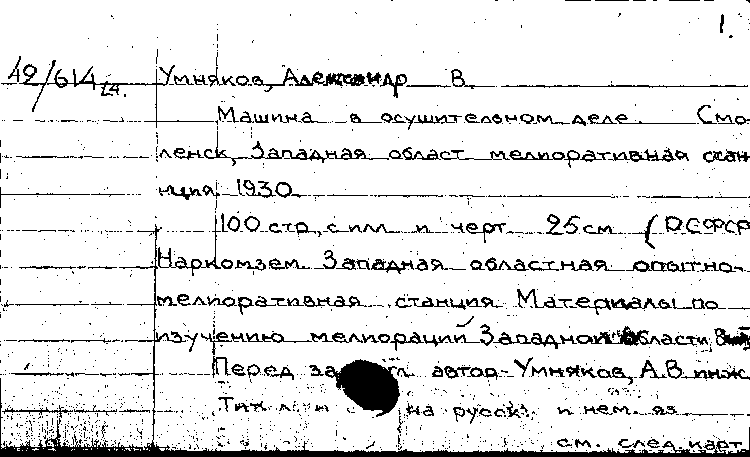 1.
42/614 24. Умняков, Александр В.
Машина в осушительном деле. Смо-
ленск, Западная област мелиоративная стан
ция. 1930.
100 стр., с илл и черт. 25 см (РСФСР
Наркомзем. Западная областная опытно-
мелиоративная станция Материалы по
изучению мелиорации Западной области
Перед автор-Умняков, А.В. инж
на русск. и нем. яз.
см. след. карт.